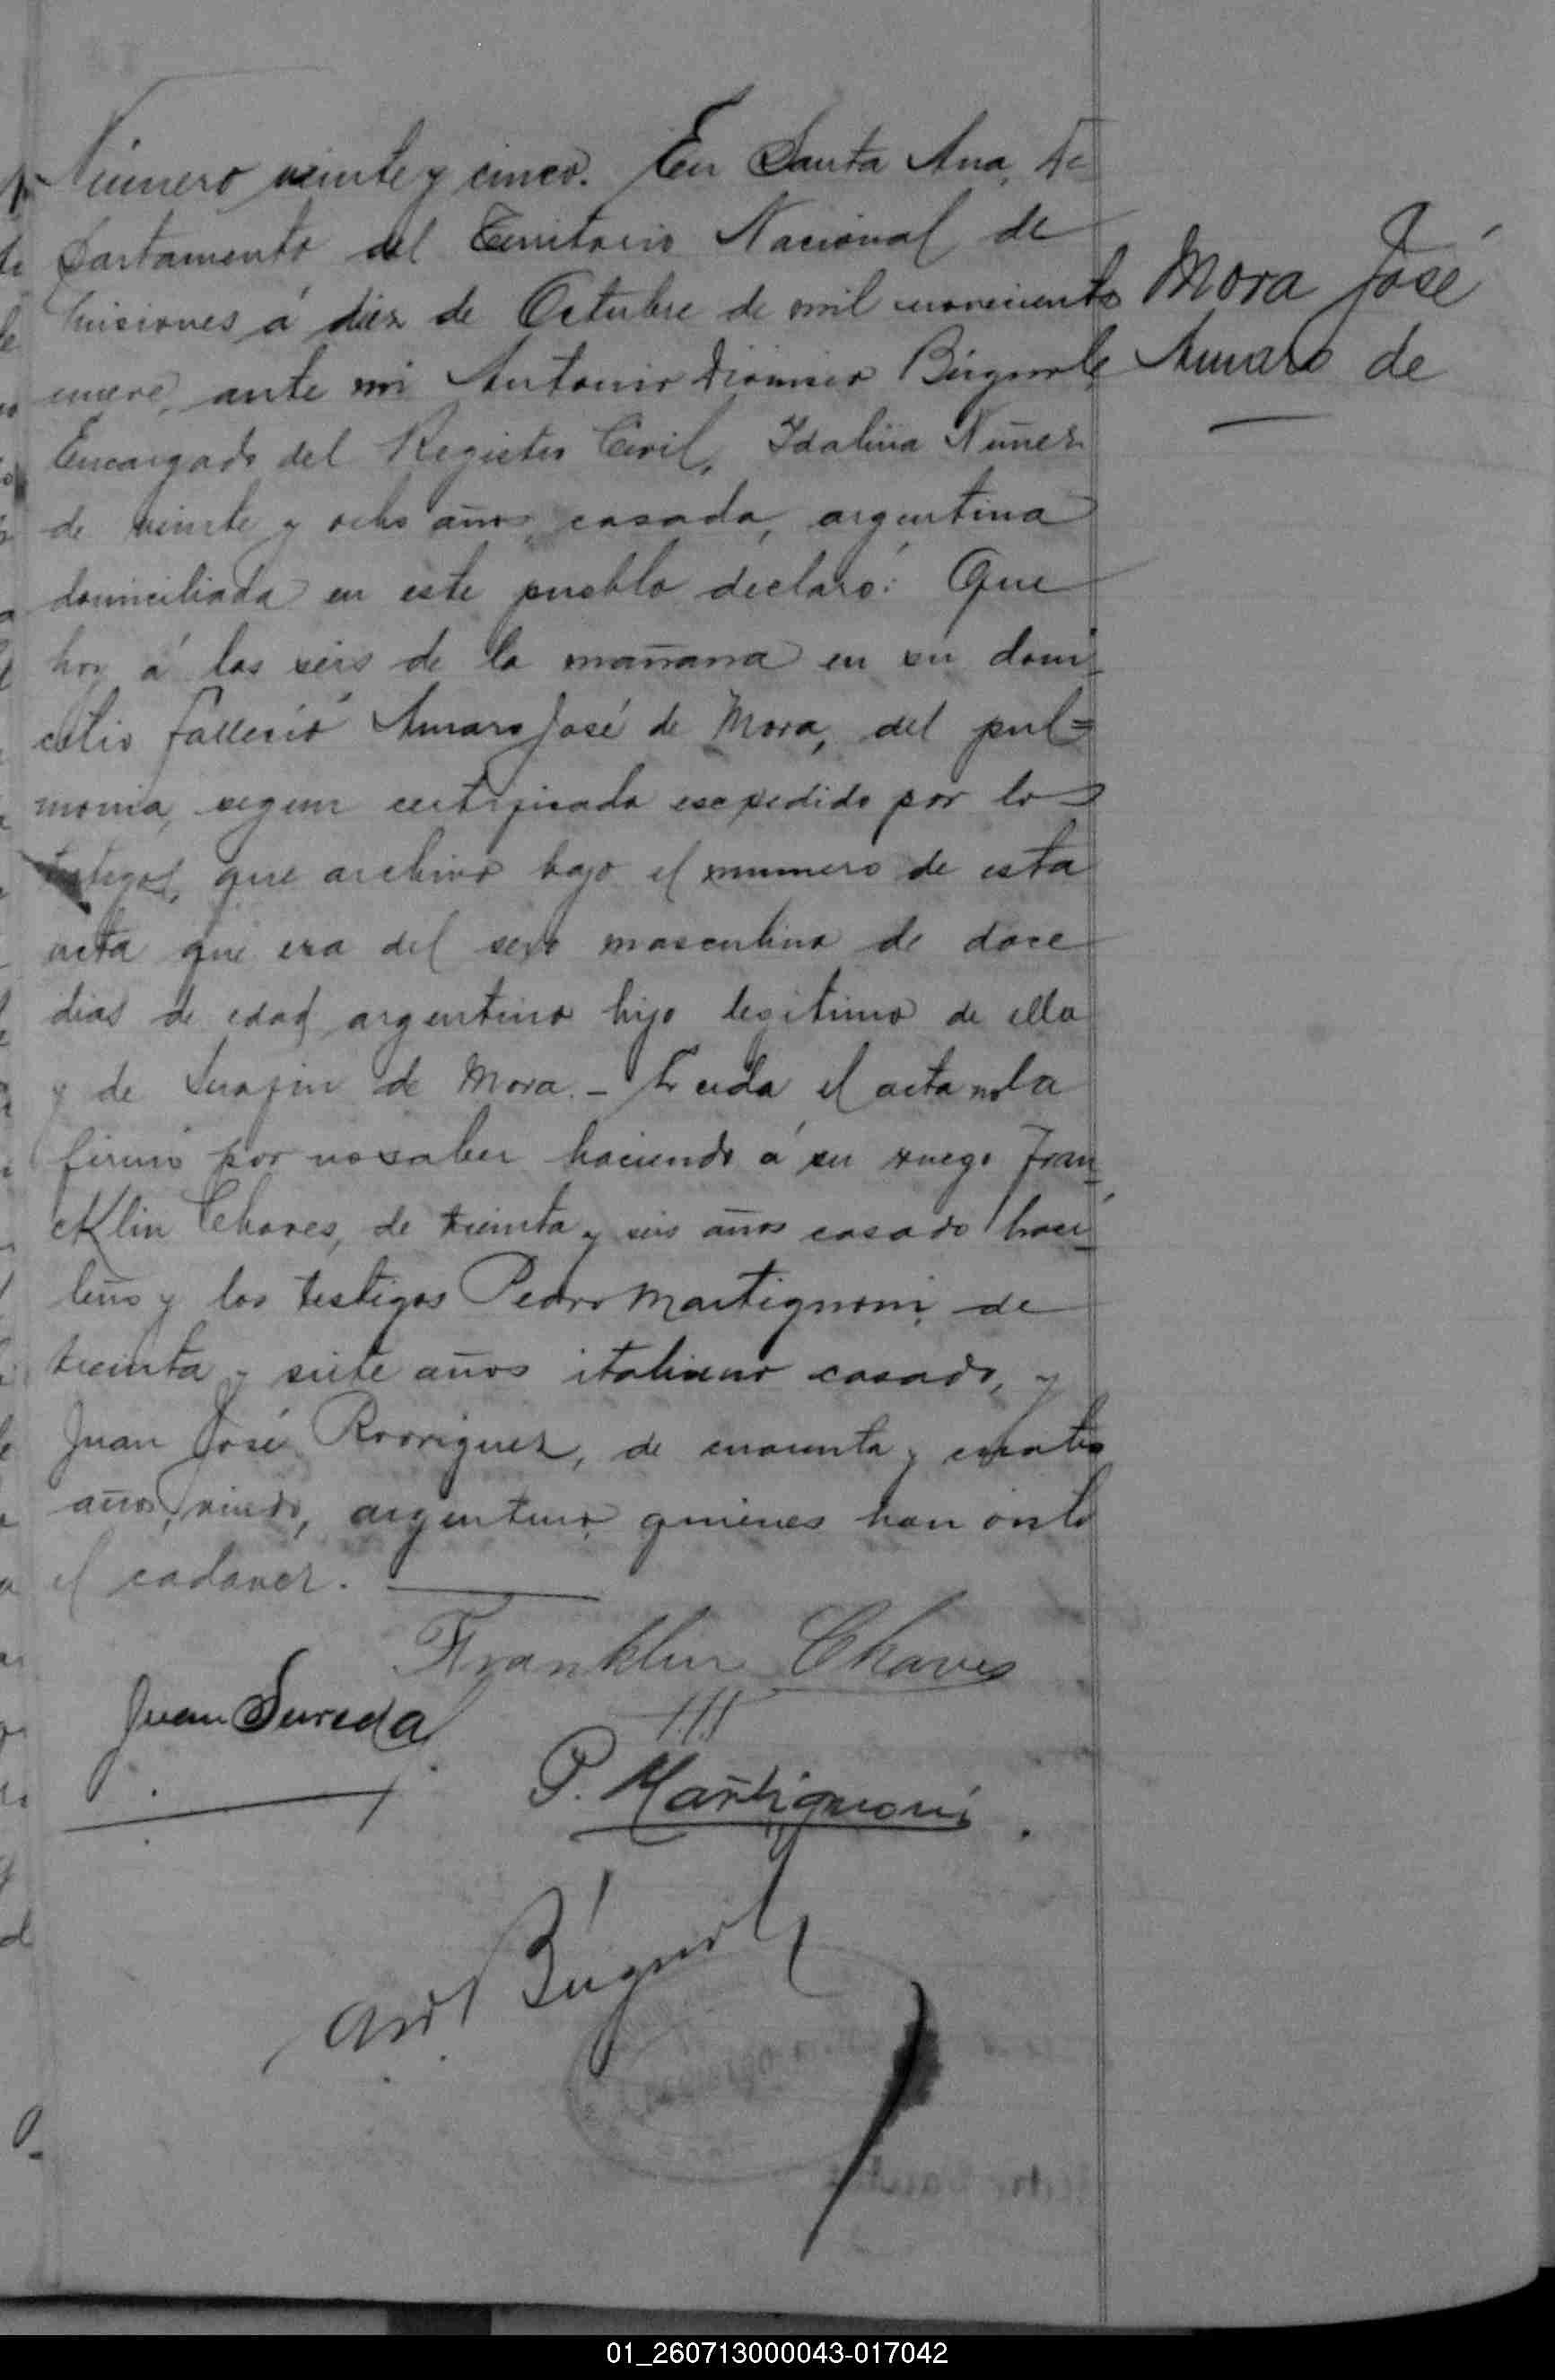 Número veinte y cinco. En Santa Ana, De
partamento del Territorio Nacional de
Misiones á diez de Octubre de mil novecientos
nueve, ante mi Antonio Dionisio Búgnole
Encargado del Registro Civil, Idalina Nuñez
de veinte y ocho años, casada, argentina
domiciliada en este pueblo declaró: Que
hoy á las seis de la mañana en su domi-
cilio falleció Amaro José de Mora, del pul=
monia, segun certificado escpedido por los
testigos, que archivo bajo el numero de esta
acta que era del sexo masculino de doce
dias de edad argentino hijo legitimo de ella
y de Serafin de Mora. - Leida el acta no la
firmó por no saber haciendo á su ruego Fran-
cKlin Chaves, de treinta y seis años casado brasi-
leño y los testigos Pedro Martignoni, de
treinta y siete años italiano casado, y
Juan José Rodriguez, de cuarenta y cuatro
años, viudo, argentino quienes han visto
el cadaver.
Mora José
Amaro de
Franklin Chaves
Juan Sureda
P. Martignoni
Ant Búgnole
01_260713000043-017042